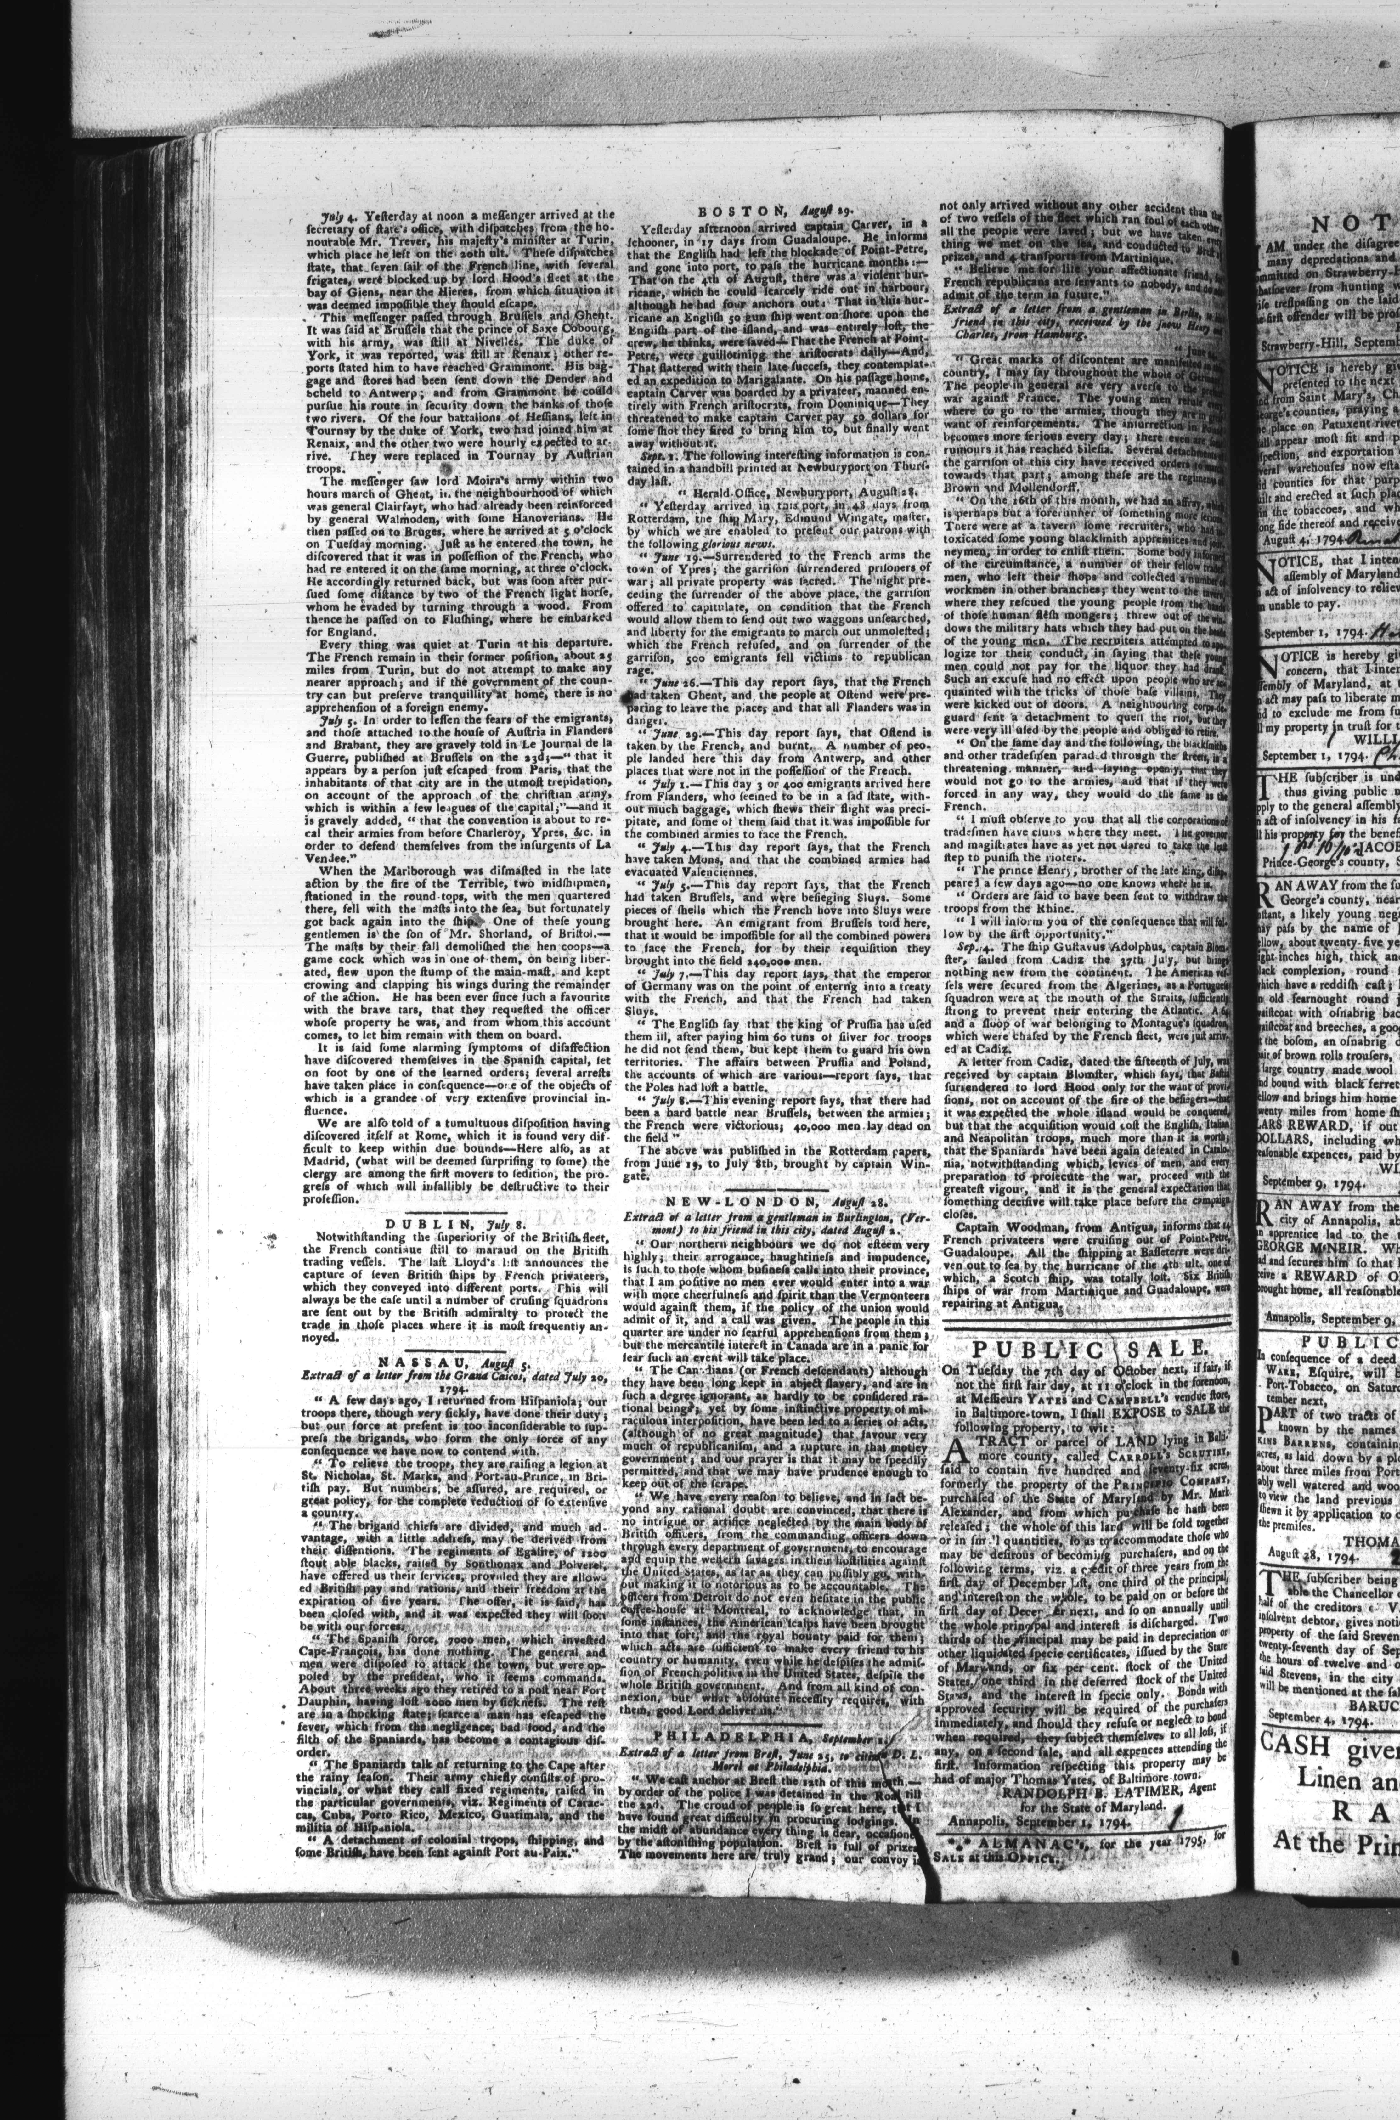 July 4. Yeſterday at noon a meſſenger arrived at the
ſecretary of ſtate's office, with diſpatches from the ho-
nourable Mr. Trever, his majeſty's miniſter at Turin,
which place he left on the 20th ult. Theſe diſpatches
ſtate, that ſeven ſail of the French line, with ſeveral
frigates, were blocked up by lord Hood's fleet at the
bay of Giens, near the Hieres, from which ſituation it
was deemed impoſſible they ſhould eſcape.
This meſſenger paſſed through Bruſſels and Ghent.
It was ſaid at Bruſſels that the prince of Saxe Cobourg,
with his army, was ſtill at Nivelles. The duke of
York, it was reported, was ſtill at Renaix; other re-
ports ſtated him to have reached Grammont. His bag-
gage and ſtores had been ſent down the Dender and
Scheld to Antwerp; and from Grammont he could
purſue his route in ſecurity down the banks of thoſe
two rivers. Of the four battalions of Heſſians, left in
Tournay by the duke of York, two had joined him at
Renaix, and the other two were hourly expected to ar-
rive. They were replaced in Tournay by Auſtrian
troops.
The meſſenger ſaw lord Moira's army within two
hours march of Ghent, in the neighbourhood of which
was general Clairfayt, who had already been reinforced
by general Walmoden, with ſome Hanoverians. He
then paſſed on to Bruges, where he arrived at 5 o'clock
on Tueſday morning. Juſt as he entered the town, he
diſcovered that it was in poſſeſſion of the French, who
had re entered it on the ſame morning, at three o'clock.
He accordingly returned back, but was ſoon after pur-
ſued ſome diſtance by two of the French light horſe,
whom he evaded by turning through a wood. From
thence he paſſed on to Fluſhing, where he embarked
for England.
Every thing was quiet at Turin at his departure.
The French remain in their former poſition, about 25
miles from Turin, but do not attempt to make any
nearer approach; and if the government of the coun-
try can but preſerve tranquillity at home, there is no
apprehenſion of a foreign enemy.
July 5. In order to leſſen the fears of the emigrants,
and thoſe attached to the houſe of Auſtria in Flanders
and Brabant, they are gravely told in Le Journal de la
Guerre, publiſhed at Bruſſels on the 23d;—" that it
appears by a perſon juſt eſcaped from Paris, that the
inhabitants of that city are in the utmoſt trepidation,
on account of the approach of the chriſtian army,
which is within a few leagues of the capital;"—and it
is gravely added, " that the convention is about to re-
cal their armies from before Charleroy, Ypres, &c. in
order to defend themſelves from the inſurgents of La
Vendee."
When the Marlborough was diſmaſted in the late
action by the fire of the Terrible, two midſhipmen,
ſtationed in the round-tops, with the men quartered
there, fell with the maſts into the ſea, but fortunately
got back again into the ſhip. One of theſe young
gentlemen is the ſon of Mr. Shorland, of Briſtol.—
The maſts by their fall demoliſhed the hen coops—a
game cock which was in one of them, on being liber-
ated, flew upon the ſtump of the main-maſt, and kept
crowing and clapping his wings during the remainder
of the action. He has been ever ſince ſuch a favourite
with the brave tars, that they requeſted the officer
whoſe property he was, and from whom this account
comes, to let him remain with them on board.
It is ſaid ſome alarming ſymptoms of diſaffection
have diſcovered themſelves in the Spaniſh capital, ſet
on foot by one of the learned orders; ſeveral arreſts
have taken place in conſequence—one of the objects of
which is a grandee of very extenſive provincial in-
fluence.
We are alſo told of a tumultuous diſpoſition having
diſcovered itſelf at Rome, which it is found very dif-
ficult to keep within due bounds—Here alſo, as at
Madrid, (what will be deemed ſurpriſing to ſome) the
clergy are among the firſt movers to ſedition, the pro-
greſs of which will infallibly be deſtructive to their
profeſſion.
DUBLIN, July 8.
Notwithſtanding the ſuperiority of the Britiſh fleet,
the French continue ſtill to maraud on the Britiſh
trading veſſels. The laſt Lloyd's liſt announces the
capture of ſeven Britiſh ſhips by French privateers,
which they conveyed into different ports. This will
always be the caſe until a number of cruſing ſquadrons
are ſent out by the Britiſh admiralty to protect the
trade in thoſe places where it is moſt frequently an-
noyed.
NASSAU, Auguſt 5.
Extract of a letter from the Grand Caicos, dated July 20,
1794.
" A few days ago, I returned from Hiſpaniola; our
troops there, though very ſickly, have done their duty;
but our force at preſent is too inconſiderable to ſup-
preſs the brigands, who form the only force of any
conſequence we have now to contend with.
" To relieve the troops, they are raiſing a legion at
St. Nicholas, St. Marks, and Port-au-Prince, in Bri-
tiſh pay. But numbers, be aſſured, are required, or
great policy, for the complete reduction of ſo extenſive
a country.
" The brigand chiefs are divided, and much ad-
vantage, with a little addreſs, may be derived from
their diſſentions. The regiments of Egalite, of 1200
ſtout able blacks, raiſed by Sonthonax and Polverel,
have offered us their ſervices, provided they are allow-
ed Britiſh pay and rations, and their freedom at the
expiration of five years. The offer, it is ſaid, has
been cloſed with, and it was expected they will ſoon
be with our forces.
" The Spaniſh force, 7000 men, which inveſted
Cape-François, has done nothing. The general and
men were diſpoſed to attack the town, but were op-
poſed by the preſident, who it ſeems commands.
About three weeks ago they retired to a poſt near Fort
Dauphin, having loſt 2000 men by ſickneſs. The reſt
are in a ſhocking ſtate; ſcarce a man has eſcaped the
fever, which from the negligence, bad food, and the
filth of the Spaniards, has become a contagious diſ-
order.
" The Spaniards talk of returning to the Cape after
the rainy ſeaſon. Their army chiefly conſiſts of pro-
vincials, or what they call fixed regiments, raiſed in
the particular governments, viz. Regiments of Carac-
cas, Cuba, Porto Rico, Mexico, Guatimala, and the
militia of Hiſpaniola.
" A detachment of colonial troops, ſhipping, and
ſome Britiſh, have been ſent againſt Port au-Paix."
BOSTON, Auguſt 29.
Yeſterday afternoon arrived captain Carver, in a
ſchooner, in 17 days from Guadaloupe. He informs
that the Engliſh had left the blockade of Point-Petre,
and gone into port, to paſs the hurricane months:—
That on the 4th of Auguſt, there was a violent hur-
ricane, which he could ſcarcely ride out in harbour,
although he had four anchors out: That in this hur-
ricane an Engliſh 50 gun ſhip went on ſhore upon the
Engliſh part of the iſland, and was entirely loſt, the
crew, he thinks, were ſaved—That the French at Point-
Petre, were guillotining the ariſtocrats daily—And,
That flattered with their late ſucceſs, they contemplat-
ed an expedition to Marigalante. On his paſſage home,
captain Carver was boarded by a privateer, manned en-
tirely with French ariſtocrats, from Dominique—They
threatened to make captain Carver pay 50 dollars for
ſome ſhot they fired to bring him to, but finally went
away without it.
Sept. 1. The following intereſting information is con-
tained in a handbill printed at Newburyport on Thurſ-
day laſt.
" Herald-Office, Newburyport, Auguſt 28.
" Yeſterday arrived in this port, in 48 days from
Rotterdam, the ſhip Mary, Edmund Wingate, maſter,
by which we are enabled to preſent our patrons with
the following glorious news.
" June 19.—Surrendered to the French arms the
town of Ypres; the garriſon ſurrendered priſoners of
war; all private property was ſacred. The night pre-
ceding the ſurrender of the above place, the garriſon
offered to capitulate, on condition that the French
would allow them to ſend out two waggons unſearched,
and liberty for the emigrants to march out unmoleſted;
which the French refuſed, and on ſurrender of the
garriſon, 500 emigrants fell victims to republican
rage.
" June 26.—This day report ſays, that the French
had taken Ghent, and the people at Oſtend were pre-
paring to leave the place; and that all Flanders was in
danger.
" June 29.—This day report ſays, that Oſtend is
taken by the French, and burnt. A number of peo-
ple landed here this day from Antwerp, and other
places that were not in the poſſeſſion of the French.
" July 1.—This day 3 or 400 emigrants arrived here
from Flanders, who ſeemed to be in a ſad ſtate, with-
out much baggage, which ſhews their flight was preci-
pitate, and ſome of them ſaid that it was impoſſible for
the combined armies to face the French.
" July 4.—This day report ſays, that the French
have taken Mons, and that the combined armies had
evacuated Valenciennes.
" July 5.—This day report ſays, that the French
had taken Bruſſels, and were beſieging Sluys. Some
pieces of ſhells which the French hove into Sluys were
brought here. An emigrant from Bruſſels told here,
that it would be impoſſible for all the combined powers
to face the French, for by their requiſition they
brought into the field 240,000 men.
" July 7.—This day report ſays, that the emperor
of Germany was on the point of enterng into a treaty
with the French, and that the French had taken
Sluys.
" The Engliſh ſay that the king of Pruſſia has uſed
them ill, after paying him 60 tuns of ſilver for troops
he did not ſend them, but kept them to guard his own
territories. The affairs between Pruſſia and Poland,
the accounts of which are various—report ſays, that
the Poles had loſt a battle.
" July 8.—This evening report ſays, that there had
been a hard battle near Bruſſels, between the armies;
the French were victorious; 40,000 men lay dead on
the field "
The above was publiſhed in the Rotterdam papers,
from June 19, to July 8th, brought by captain Win-
gate.
NEW-LONDON, Auguſt 28.
Extract of a letter from a gentleman in Burlington, (Ver-
mont) to his friend in this city, dated Auguſt 2.
" Our northern neighbours we do not eſteem very
highly; their arrogance, haughtineſs and impudence,
is ſuch to thoſe whom buſineſs calls into their province,
that I am poſitive no men ever would enter into a war
with more cheerfulneſs and ſpirit than the Vermonteers
would againſt them, if the policy of the union would
admit of it, and a call was given. The people in this
quarter are under no fearful apprehenſions from them;
but the mercantile intereſt in Canada are in a panic for
fear ſuch an event will take place.
" The Canadians (or French deſcendants) although
they have been long kept in abject ſlavery, and are in
ſuch a degree ignorant, as hardly to be conſidered ra-
tional beings, yet by ſome inſtinctive property of mi-
raculous interpoſition, have been led to a ſeries of acts,
(although of no great magnitude) that favour very
much of republicaniſm, and a rupture in that motley
government; and our prayer is that it may be ſpeedily
permitted, and that we may have prudence enough to
keep out of the ſcrape.
" We have every reaſon to believe, and in fact be-
yond any rational doubt are convinced, that there is
no intrigue or artifice neglected by the main body of
Britiſh officers, from the commanding officers down
through every department of government, to encourage
and equip the weſtern ſavages in their hoſtilities againſt
the United States, as far as they can poſſibly go, with-
out making it ſo notorious as to be accountable. The
officers from Detroit do not even heſitate in the public
coffee-houſe at Montreal, to acknowledge that, in
ſome inſtances, the American ſcalps have been brought
into that fort, and the royal bounty paid for them;
which acts are ſufficient to make every friend to his
country or humanity, even while he deſpiſes the admiſ-
ſion of French politics in the United States, deſpiſe the
whole Britiſh government. And from all kind of con-
nexion, but what abſolute neceſſity requires, with
them, good Lord deliver us."
PHILADELPHIA, September 1.
Extract of a letter from Breſt, June 25, to citizen D. L.
Morel at Philadelphia.
" We caſt anchor at Breſt the 12th of this month,—
by order of the police I was detained in the Road till
the 22d. The croud of people is ſo great here, that I
have found great difficulty in procuring lodgings. In
the midſt of abundance every thing is dear, occaſioned
by the aſtoniſhing population. Breſt is full of prizes.
The movements here are truly grand; our convoy is
not only arrived without any other accident than the
of two veſſels of the fleet which ran foul of each other,
all the people were ſaved; but we have taken every
thing we met on the ſea, and conducted to Breſt
prizes, and 4 tranſports from Martinique.
" Believe me for life your affectionate friend,
French republicans are ſervants to nobody, and do not
admit of the term in future."
Extract of a letter from a gentleman in Berlin, to his
friend in this city, received by the ſnow Henry and
Charles, from Hamburg.
" Great marks of diſcontent are manifeſted in
country, I may ſay throughout the whole of Germany.
The people in general are very averſe to the
war againſt France. The young men refuſe
where to go to the armies, though they are in
want of reinforcements. The inſurrection in Poland
becomes more ſerious every day; there even are
rumours it has reached Sileſia. Several detachments
the garriſon of this city have received orders to march
towards that part; among theſe are the regiments of
Brown and Mollendorff.
" On the 16th of this month, we had an affray, which
is perhaps but a forerunner of ſomething more ſerious.
There were at a tavern ſome recruiters, who had in-
toxicated ſome young blackſmith apprentices and jour-
neymen, in order to enliſt them. Some body informed
of the circumſtance, a number of their fellow tradeſ-
men, who left their ſhops and collected a number of
workmen in other branches; they went to the tavern,
where they reſcued the young people from the hands
of thoſe human fleſh mongers; threw out of the win-
dows the military hats which they had put on the heads
of the young men. The recruiters attempted to apo-
logize for their conduct, in ſaying that theſe young
men could not pay for the liquor they had drank.
Such an excuſe had no effect upon people who are ac-
quainted with the tricks of thoſe baſe villains. They
were kicked out of doors. A neighbouring corps-de-
guard ſent a detachment to quell the riot, but they
were very ill uſed by the people and obliged to retire.
" On the ſame day and the following, the blackſmiths
and other tradeſmen paraded through the ſtreets, in a
threatening manner, and ſaying openly, that they
would not go to the armies, and that if they were
forced in any way, they would do the ſame as the
French.
" I muſt obſerve to you that all the corporations of
tradeſmen have clubs where they meet. The governor
and magiſtrates have as yet not dared to take the leaſt
ſtep to puniſh the rioters.
" The prince Henry, brother of the late king, diſap-
peared a few days ago—no one knows where he is.
" Orders are ſaid to have been ſent to withdraw the
troops from the Rhine.
" I will inform you of the conſequence that will fol-
low by the firſt opportunity."
Sep. 4. The ſhip Guſtavus Adolphus, captain Blom-
ſter, ſailed from Cadiz the 37th July, but brings
nothing new from the continent. The American veſ-
ſels were ſecured from the Algerines, as a Portugueſe
ſquadron were at the mouth of the Straits, ſufficiently
ſtrong to prevent their entering the Atlantic. A 64
and a ſloop of war belonging to Montague's ſquadron,
which were chaſed by the French fleet, were juſt arriv-
ed at Cadiz.
A letter from Cadiz, dated the fifteenth of July, was
received by captain Blomſter, which ſays, that Baſtia
ſurrendered to lord Hood only for the want of provi-
ſions, not on account of the fire of the beſiegers—that
it was expected the whole iſland would be conquered,
but that the acquiſition would coſt the Engliſh, Italian
and Neapolitan troops, much more than it is worth;
that the Spaniards have been again defeated in Catalo-
nia, notwithſtanding which, levies of men, and every
preparation to proſecute the war, proceed with the
greateſt vigour, and it is the general expectation that
ſomething deciſive will take place before the campaign
cloſes.
Captain Woodman, from Antigua, informs that 14
French privateers were cruiſing out of Point-Petre,
Guadaloupe. All the ſhipping at Baſſeterre were dri-
ven out to ſea by the hurricane of the 4th ult. one of
which, a Scotch ſhip, was totally loſt. Six Britiſh
ſhips of war from Martinique and Guadaloupe, were
repairing at Antigua.
PUBLIC SALE.
On Tueſday the 7th day of October next, if fair, if
not the firſt fair day, at 11 o'clock in the forenoon,
at Meſſieurs YATES and CAMPBELL's vendue ſtore,
in Baltimore-town, I ſhall EXPOSE to SALE the
following property, to wit:
A TRACT or parcel of LAND lying in Balti-
more county, called CARROLL'S SCRUTINY,
ſaid to contain five hundred and ſeventy-ſix acres,
formerly the property of the PRINCIPIO COMPANY,
purchaſed of the State of Maryland by Mr. Mark
Alexander, and from which purchaſe he hath been
releaſed; the whole of this land will be ſold together
or in ſmall quantities, ſo as to accommodate thoſe who
may be deſirous of becoming purchaſers, and on the
following terms, viz. a credit of three years from the
firſt day of December laſt, one third of the principal,
and intereſt on the whole, to be paid on or before the
firſt day of December next, and ſo on annually until
the whole principal and intereſt is diſcharged. Two
thirds of the principal may be paid in depreciation or
other liquidated ſpecie certificates, iſſued by the State
of Maryland, or ſix per cent. ſtock of the United
States, one third in the deferred ſtock of the United
States, and the intereſt in ſpecie only. Bonds with
approved ſecurity will be required of the purchaſers
immediately, and ſhould they refuſe or neglect to bond
when required, they ſubject themſelves to all loſs, if
any, on a ſecond ſale, and all expences attending the
firſt. Information reſpecting this property may be
had of major Thomas Yates, of Baltimore-town.
RANDOLPH B. LATIMER, Agent
for the State of Maryland.
Annapolis, September 1, 1794.
*,* ALMANAC's, for the year 1795, for
SALE at this OFFICE.
NOT
I AM under the diſagree
many depredations and
ommitted on Strawberry-
hatſoever from hunting w
iſe treſpaſſing on the ſaid
he firſt offender will be proſ
Strawberry-Hill, Septemb
NOTICE is hereby giv
preſented to the next
nd from Saint Mary's, Ch
eorge's counties, praying
he place on Patuxent river
all appear moſt fit and p
ſpection, and exportation
veral warehouſes now eſta
id counties for that purp
uilt and erected at ſuch pla
in the tobaccoes, and wh
ong ſide thereof and receiv
Auguſt 4, 1794
NOTICE, that I inten
aſſembly of Maryland
n act of inſolvency to reliev
m unable to pay.
September 1, 1794.
NOTICE is hereby giv
concern, that I inten
ſembly of Maryland, at
n act may paſs to liberate m
nd to exclude me from fu
ll my property in truſt for t
WILLI
September 1, 1794.
THE ſubſcriber is und
thus giving public n
pply to the general aſſembly
n act of inſolvency in his fa
ll his property for the benef
JACOB
Prince-George's county, S
RAN AWAY from the ſu
George's county, near
nſtant, a likely young neg
may paſs by the name of
ellow, about twenty-five ye
ight inches high, thick and
lack complexion, round
hich have a reddiſh caſt;
n old fearnought round
waiſtcoat with oſnabrig bac
waiſtcoat and breeches, a good
t the boſom, an oſnabrig
air of brown rolls trouſers,
f large country made wool
nd bound with black ferret
ellow and brings him home
wenty miles from home ſh
LARS REWARD, if out
DOLLARS, including wh
reaſonable expences, paid by
WI
September 9, 1794.
RAN AWAY from the
city of Annapolis, ab
n apprentice lad to the
GEORGE M'NEIR. W
ad and ſecures him ſo that
ceive a REWARD of O
brought home, all reaſonable
Annapolis, September 9,
PUBLIC
In conſequence of a deed
WARE, Eſquire, will b
Port-Tobacco, on Satur
tember next,
PART of two tracts of
known by the names
KINS BARRENS, containi
acres, as laid down by a plo
about three miles from Port
ably well watered and woo
to view the land previous
ſhewn it by application to
the premiſes.
THOMA
Auguſt 28, 1794.
THE ſubſcriber being
able the Chancellor
half of the creditors
inſolvent debtor, gives noti
property of the ſaid Steven
twenty-ſeventh day of Sep
the hours of twelve and o
ſaid Stevens, in the city
will be mentioned at the ſal
BARUC
September 4, 1794.
CASH given
Linen an
RA
At the Prin